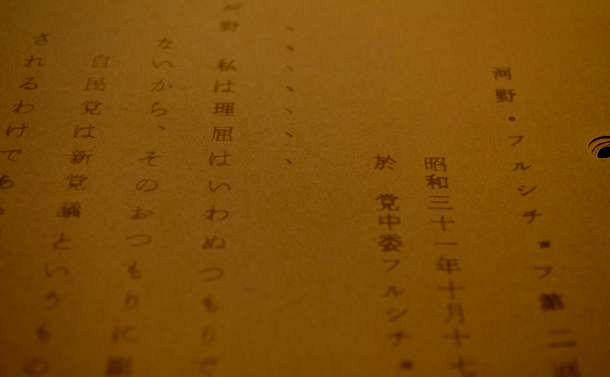 河野・フルシチ■フ第二回
昭和三十一年十月十七
於 党中委フルシチ■
、、、、、、
河野 私は理屈はいわぬつもりで
ないから、そのおつもりに
自民党は新党議というもの
されるわけであ